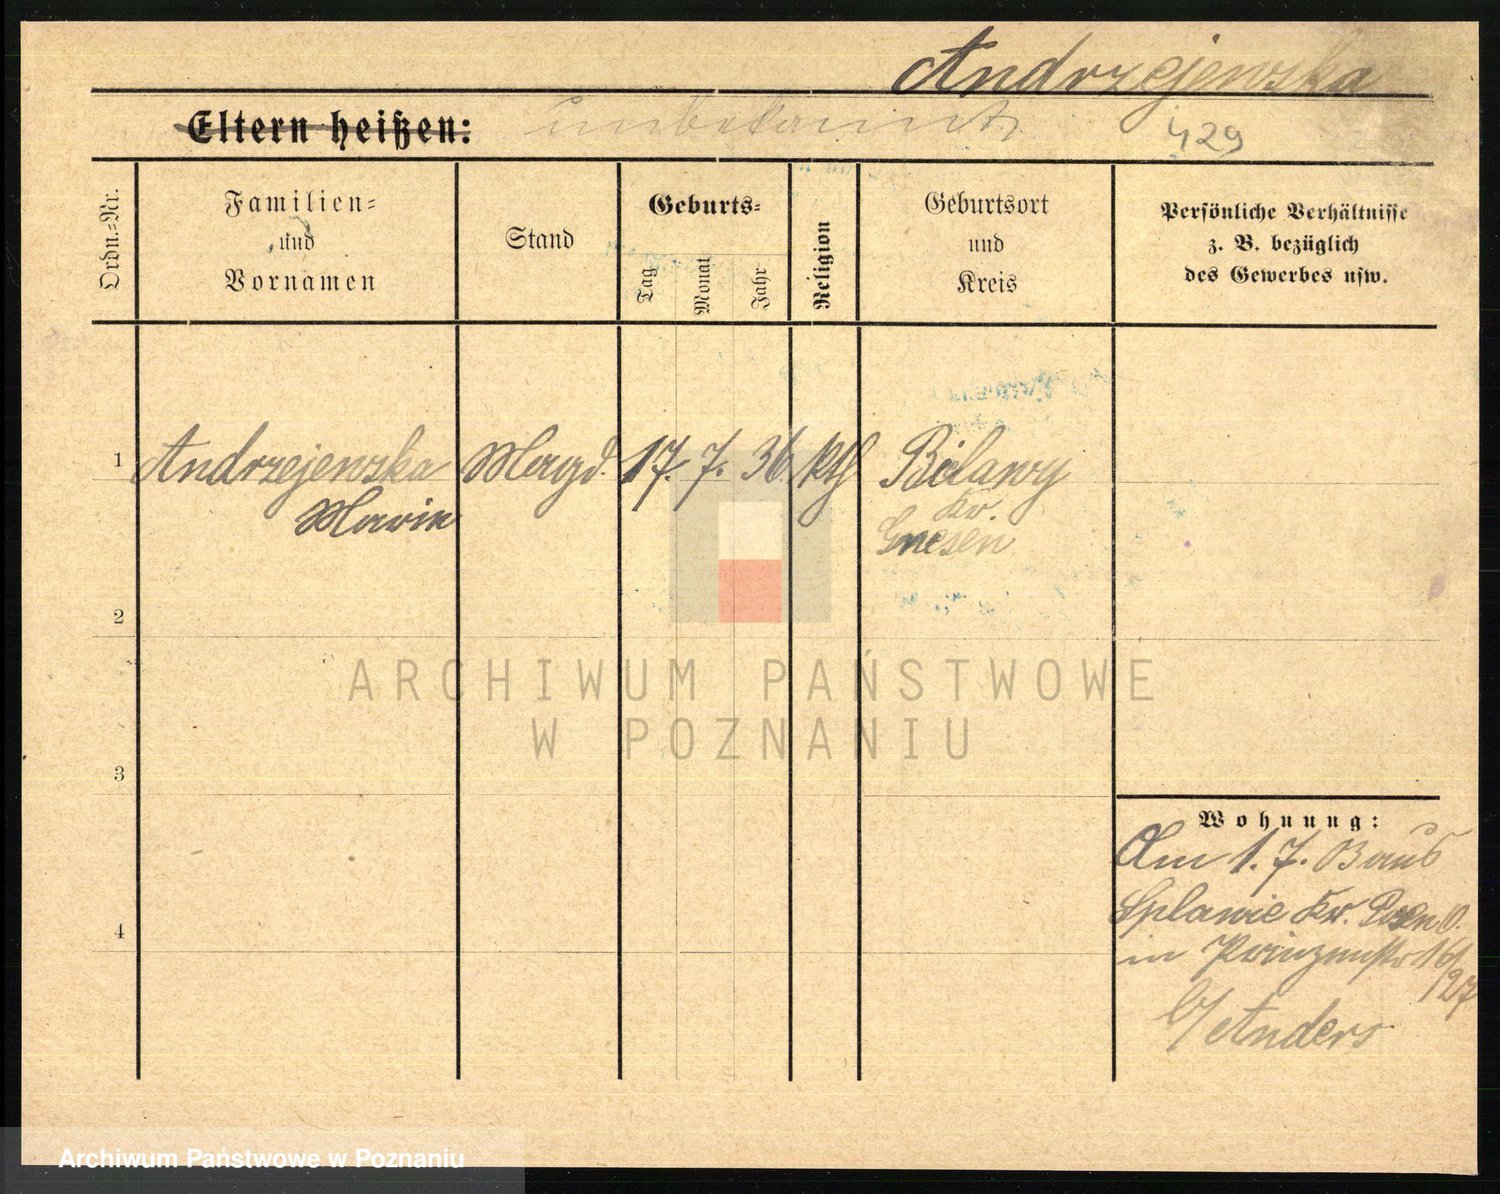 Andrzejewska
Eltern heißen: unbekannt 429
Ordn.-Nr.
Familien-
und
Vornamen
Stand
Geburts-
Tag
Monat
Jahr
Religion
Geburtsort
und
Kreis
Persönliche Verhältnisse
z. B. bezüglich
des Gewerbes usw.
1 Andrzejewska Magd. 17. 7. 36. kth Bilawy
Marie
Kr.
Gnesen
2
3
4
ARCHIWUM PAŃSTWOWE
W POZNANIU
Wohnung:
Am 1. 7. 03 aus
Splawie Kr. Posen O.
in Prinzenstr 16/
b/ Anders
Archiwum Państwowe w Poznaniu